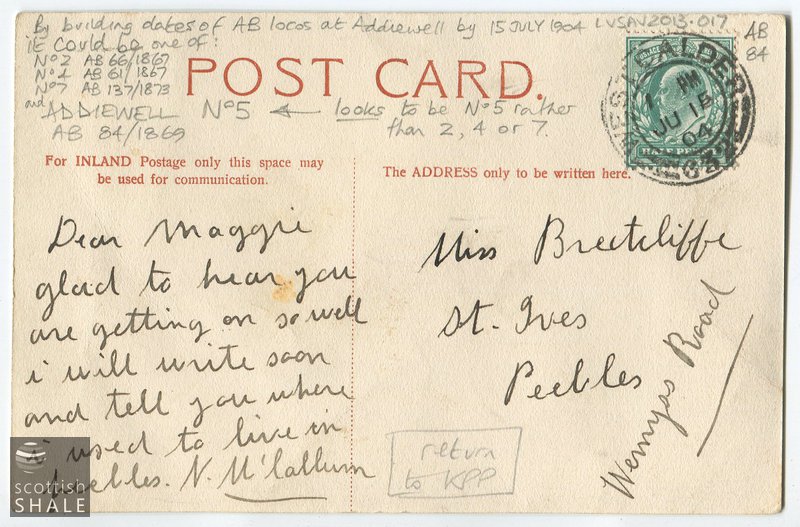 By building dates of AB locos at Addiewell by 15 JULY 1904 LVSAV2013.017
it could be one of:
Nº2 AB 66/1867
Nº4 AB 61/1867
Nº7 AB 137/1873
and
ADDIEWELL Nº5 ← looks to be Nº5 rather
AB 84/1869 than 2, 4 or 7.
AB
84
POST CARD.
WEST CALDER
1 PM
JU 15
04
HALF PENNY
For INLAND Postage only this space may
be used for communication.
The ADDRESS only to be written here.
Dear Maggie
glad to hear you
are getting on so well
i will write soon
and tell you where
i used to live in
Peebles. N. McCallum
Miss Breetcliffe
St. Ives
Peebles
Wemyss Road
return
to KPP
scottish
SHALE